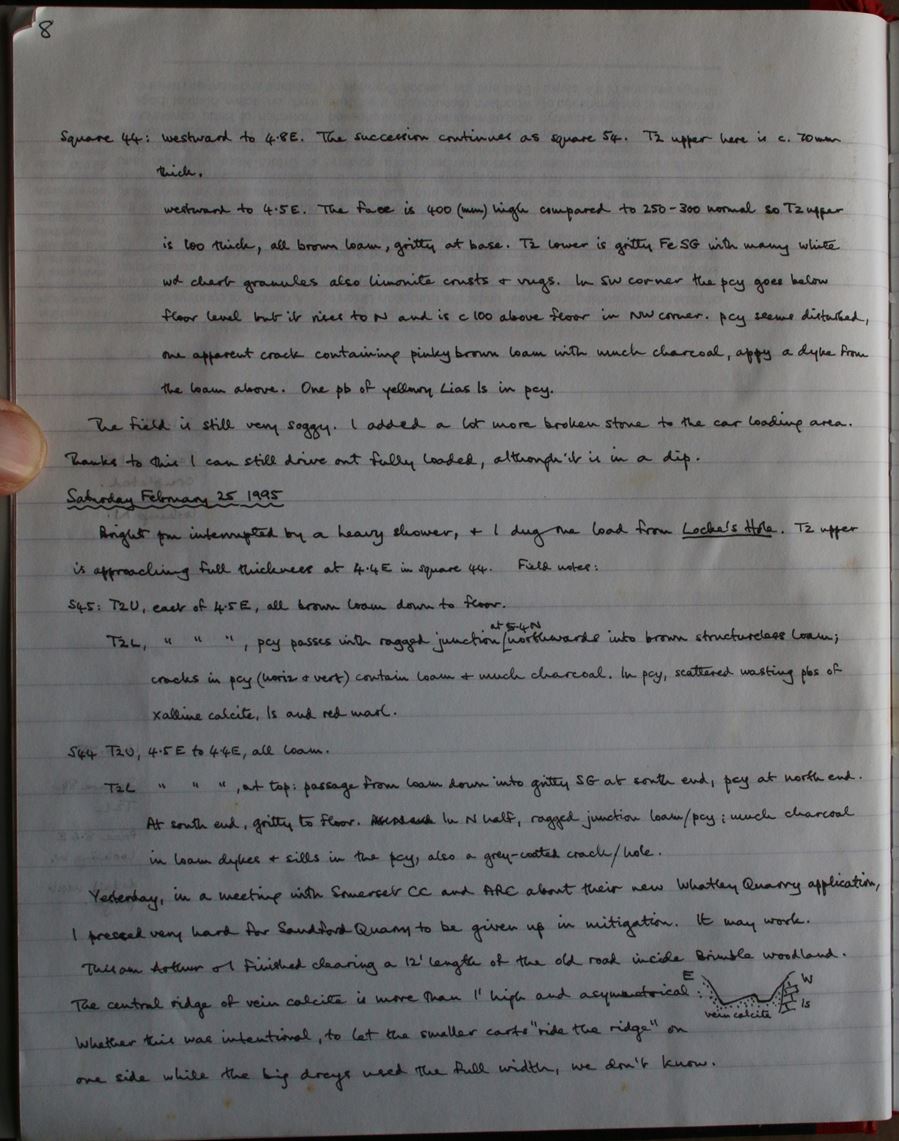 8
Square 44: westward to 4.8E. The succession continues as square 54. T2 upper here is c. 70mm
thick.
westward to 4.5E. The face is 400 (mm) high compared to 250-300 normal so T2 upper
is 100 thick, all brown loam, gritty at base. T2 lower is gritty FeSG with many white
wd chert granules also limonite crusts & vugs. In SW corner the pcy goes below
floor level but it rises to N and is c100 above floor in NW corner. pcy seems disturbed,
one apparent crack containing pinky brown loam with much charcoal, appy a dyke from
the loam above. One pb of yellowy Lias ls in pcy.
The field is still very soggy. I added a lot more broken stone to the car loading area.
Thanks to this I can still drive out fully loaded, although it is in a dip.
Saturday February 25 1995
Bright pm interrupted by a heavy shower, & I dug one load from Locke's Hole. T2 upper
is approaching full thickness at 4.4E in square 44. Field notes:
S45: T2U, east of 4.5E, all brown loam down to floor.
at 5.4N
T2L, " " ", pcy passes with ragged junction northwards into brown structureless loam;
cracks in pcy (horiz & vert) contain loam & much charcoal. In pcy, scattered wasting pbs of
xalline calcite, ls and red marl.
S44 T2U, 4.5E to 4.4E, all loam.
T2L " " ", at top: passage from loam down into gritty SG at south end, pcy at north end.
At south end, gritty to floor. In N half, ragged junction loam/pcy; much charcoal
in loam dykes & sills in the pcy, also a grey-coated crack/hole.
Yesterday, in a meeting with Somerset CC and ARC about their new Whatley Quarry application,
I pressed very hard for Sandford Quarry to be given up in mitigation. It may work.
This am Arthur & I finished clearing a 12' length of the old road inside Brimble woodland.
The central ridge of vein calcite is more than 1" high and asymmetrical:
E W
vein calcite ls
Whether this was intentional, to let the smaller carts "ride the ridge" on
one side while the big drays used the full width, we don't know.